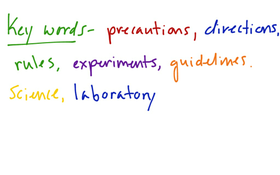 Key words- precautions, directions,
rules, experiments, guidelines.
Science, laboratory